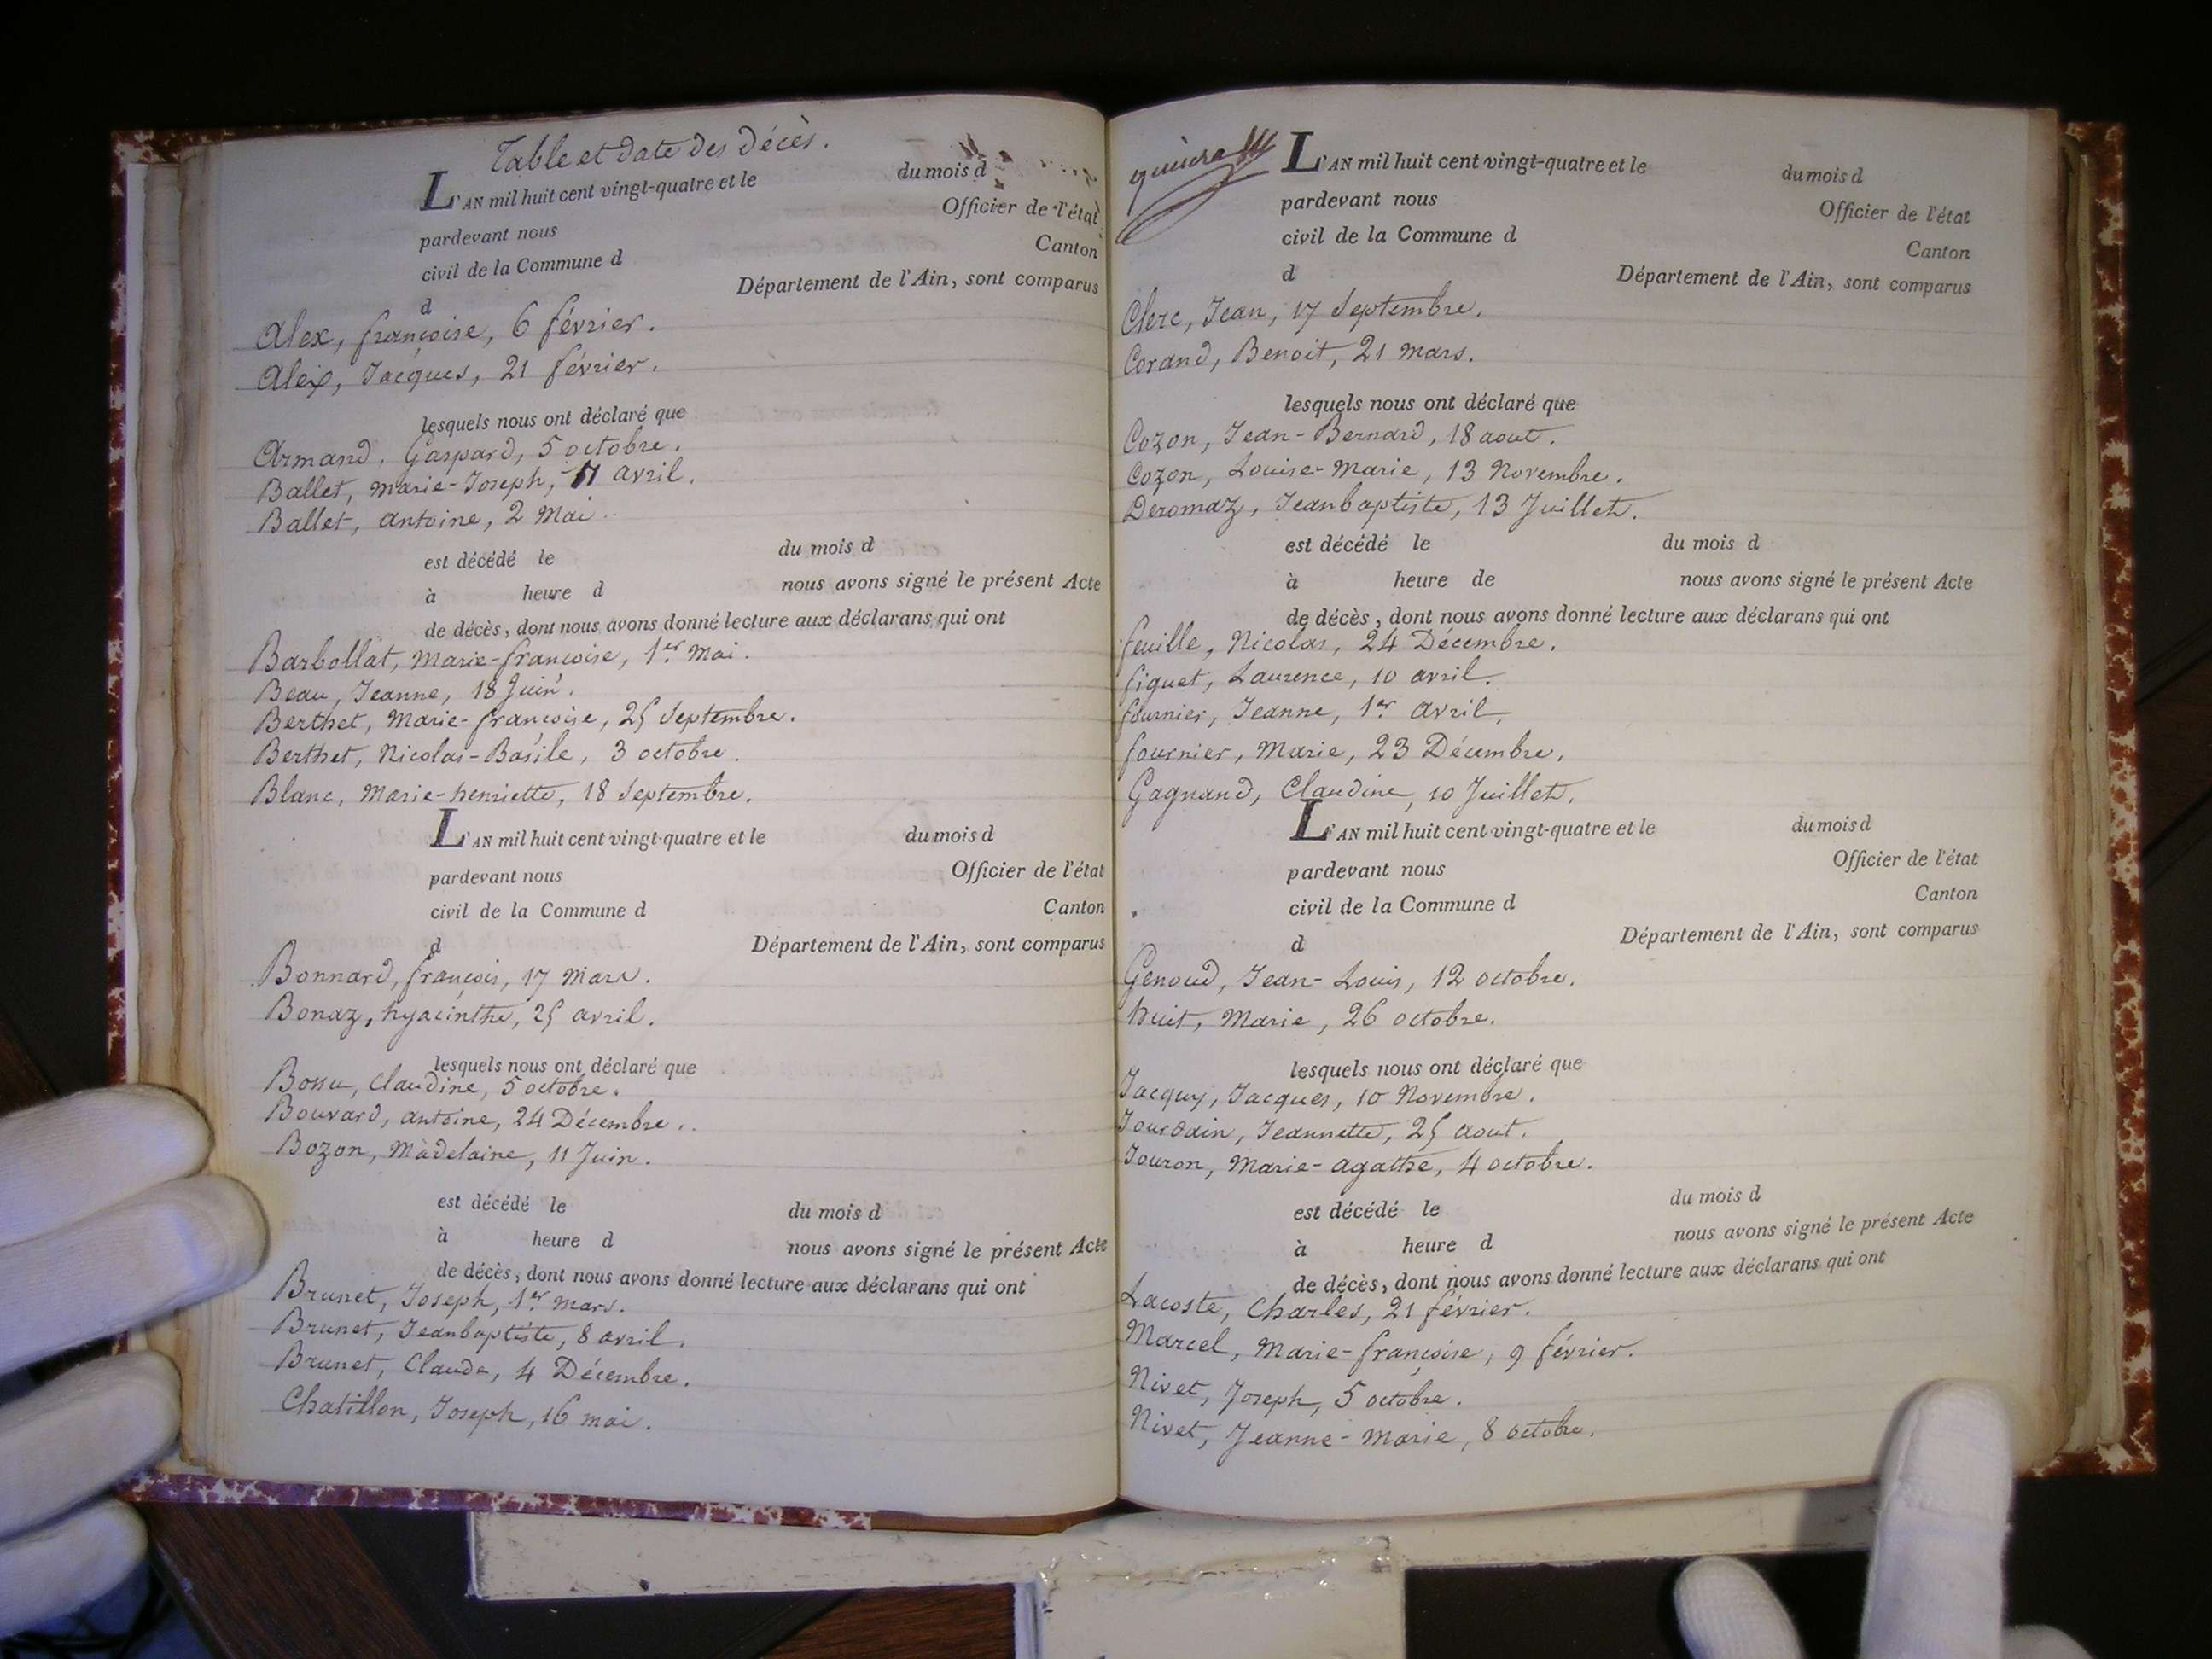 Table et date des décès.
L'AN mil huit cent vingt-quatre et le du mois d
pardevant nous Officier de l'état
civil de la Commune d Canton
d Département de l'Ain, sont comparus
Alex, françoise, 6 février.
Alex, Jacques, 21 février.
lesquels nous ont déclaré que
Armand, Gaspard, 5 octobre.
Ballet, marie-Joseph, avril.
Ballet, antoine, 2 Mai
est décédé le du mois d
à heure d nous avons signé le présent Acte
de décès, dont nous avons donné lecture aux déclarans qui ont
Barbollat, Marie-françoise, 1er. mai.
Beau, Jeanne, 18 Juin.
Berthet, Marie-françoise, 25 Septembre.
Berthet, Nicolas-Basile, 3 octobre.
Blanc, Marie-henriette, 18 Septembre.
L'AN mil huit cent vingt-quatre et le du mois d
pardevant nous Officier de l'état
civil de la Commune d Canton
d Département de l'Ain, sont comparus
Bonnard, françois, 17 mars.
Bonaz, hyacinthe, 25 avril.
lesquels nous ont déclaré que
Bossu, Claudine, 5 octobre.
Bouvard, antoine, 24 Décembre.
Bozon, Madelaine, 11 Juin.
est décédé le du mois d
à heure d nous avons signé le présent Acte
de décès, dont nous avons donné lecture aux déclarans qui ont
Brunet, Joseph, 1er. mars.
Brunet, Jeanbaptiste, 8 avril.
Brunet, Claude, 4 Décembre.
Chatillon, Joseph, 16 mai.
L'AN mil huit cent vingt-quatre et le du mois d
pardevant nous Officier de l'état
civil de la Commune d Canton
d Département de l'Ain, sont comparus
Clerc, Jean, 17 Septembre.
Corand, Benoit, 21 mars.
lesquels nous ont déclaré que
Cozon, Jean-Bernard, 18 aout.
Cozon, Louise-Marie, 13 Novembre.
Deromaz, Jeanbaptiste, 13 Juillet.
est décédé le du mois d
à heure de nous avons signé le présent Acte
de décès, dont nous avons donné lecture aux déclarans qui ont
feuille, Nicolas, 24 Décembre.
figuet, Laurence, 10 avril.
fournier, Jeanne, 1er. avril.
fournier, Marie, 23 Décembre.
Gagnand, Claudine, 10 Juillet.
L'AN mil huit cent vingt-quatre et le du mois d
pardevant nous Officier de l'état
civil de la Commune d Canton
d Département de l'Ain, sont comparus
Genoud, Jean-Louis, 12 octobre.
huit, Marie, 26 octobre.
lesquels nous ont déclaré que
Jacquy, Jacques, 10 Novembre.
Jourdain, Jeannette, 25 aout.
Jouron, Marie-agathe, 4 octobre.
est décédé le du mois d
à heure d nous avons signé le présent Acte
de décès, dont nous avons donné lecture aux déclarans qui ont
Lacoste, Charles, 21 février.
Marcel, Marie-françoise, 9 février.
Nivet, Joseph, 5 octobre.
Nivet, Jeanne-marie, 8 octobre.